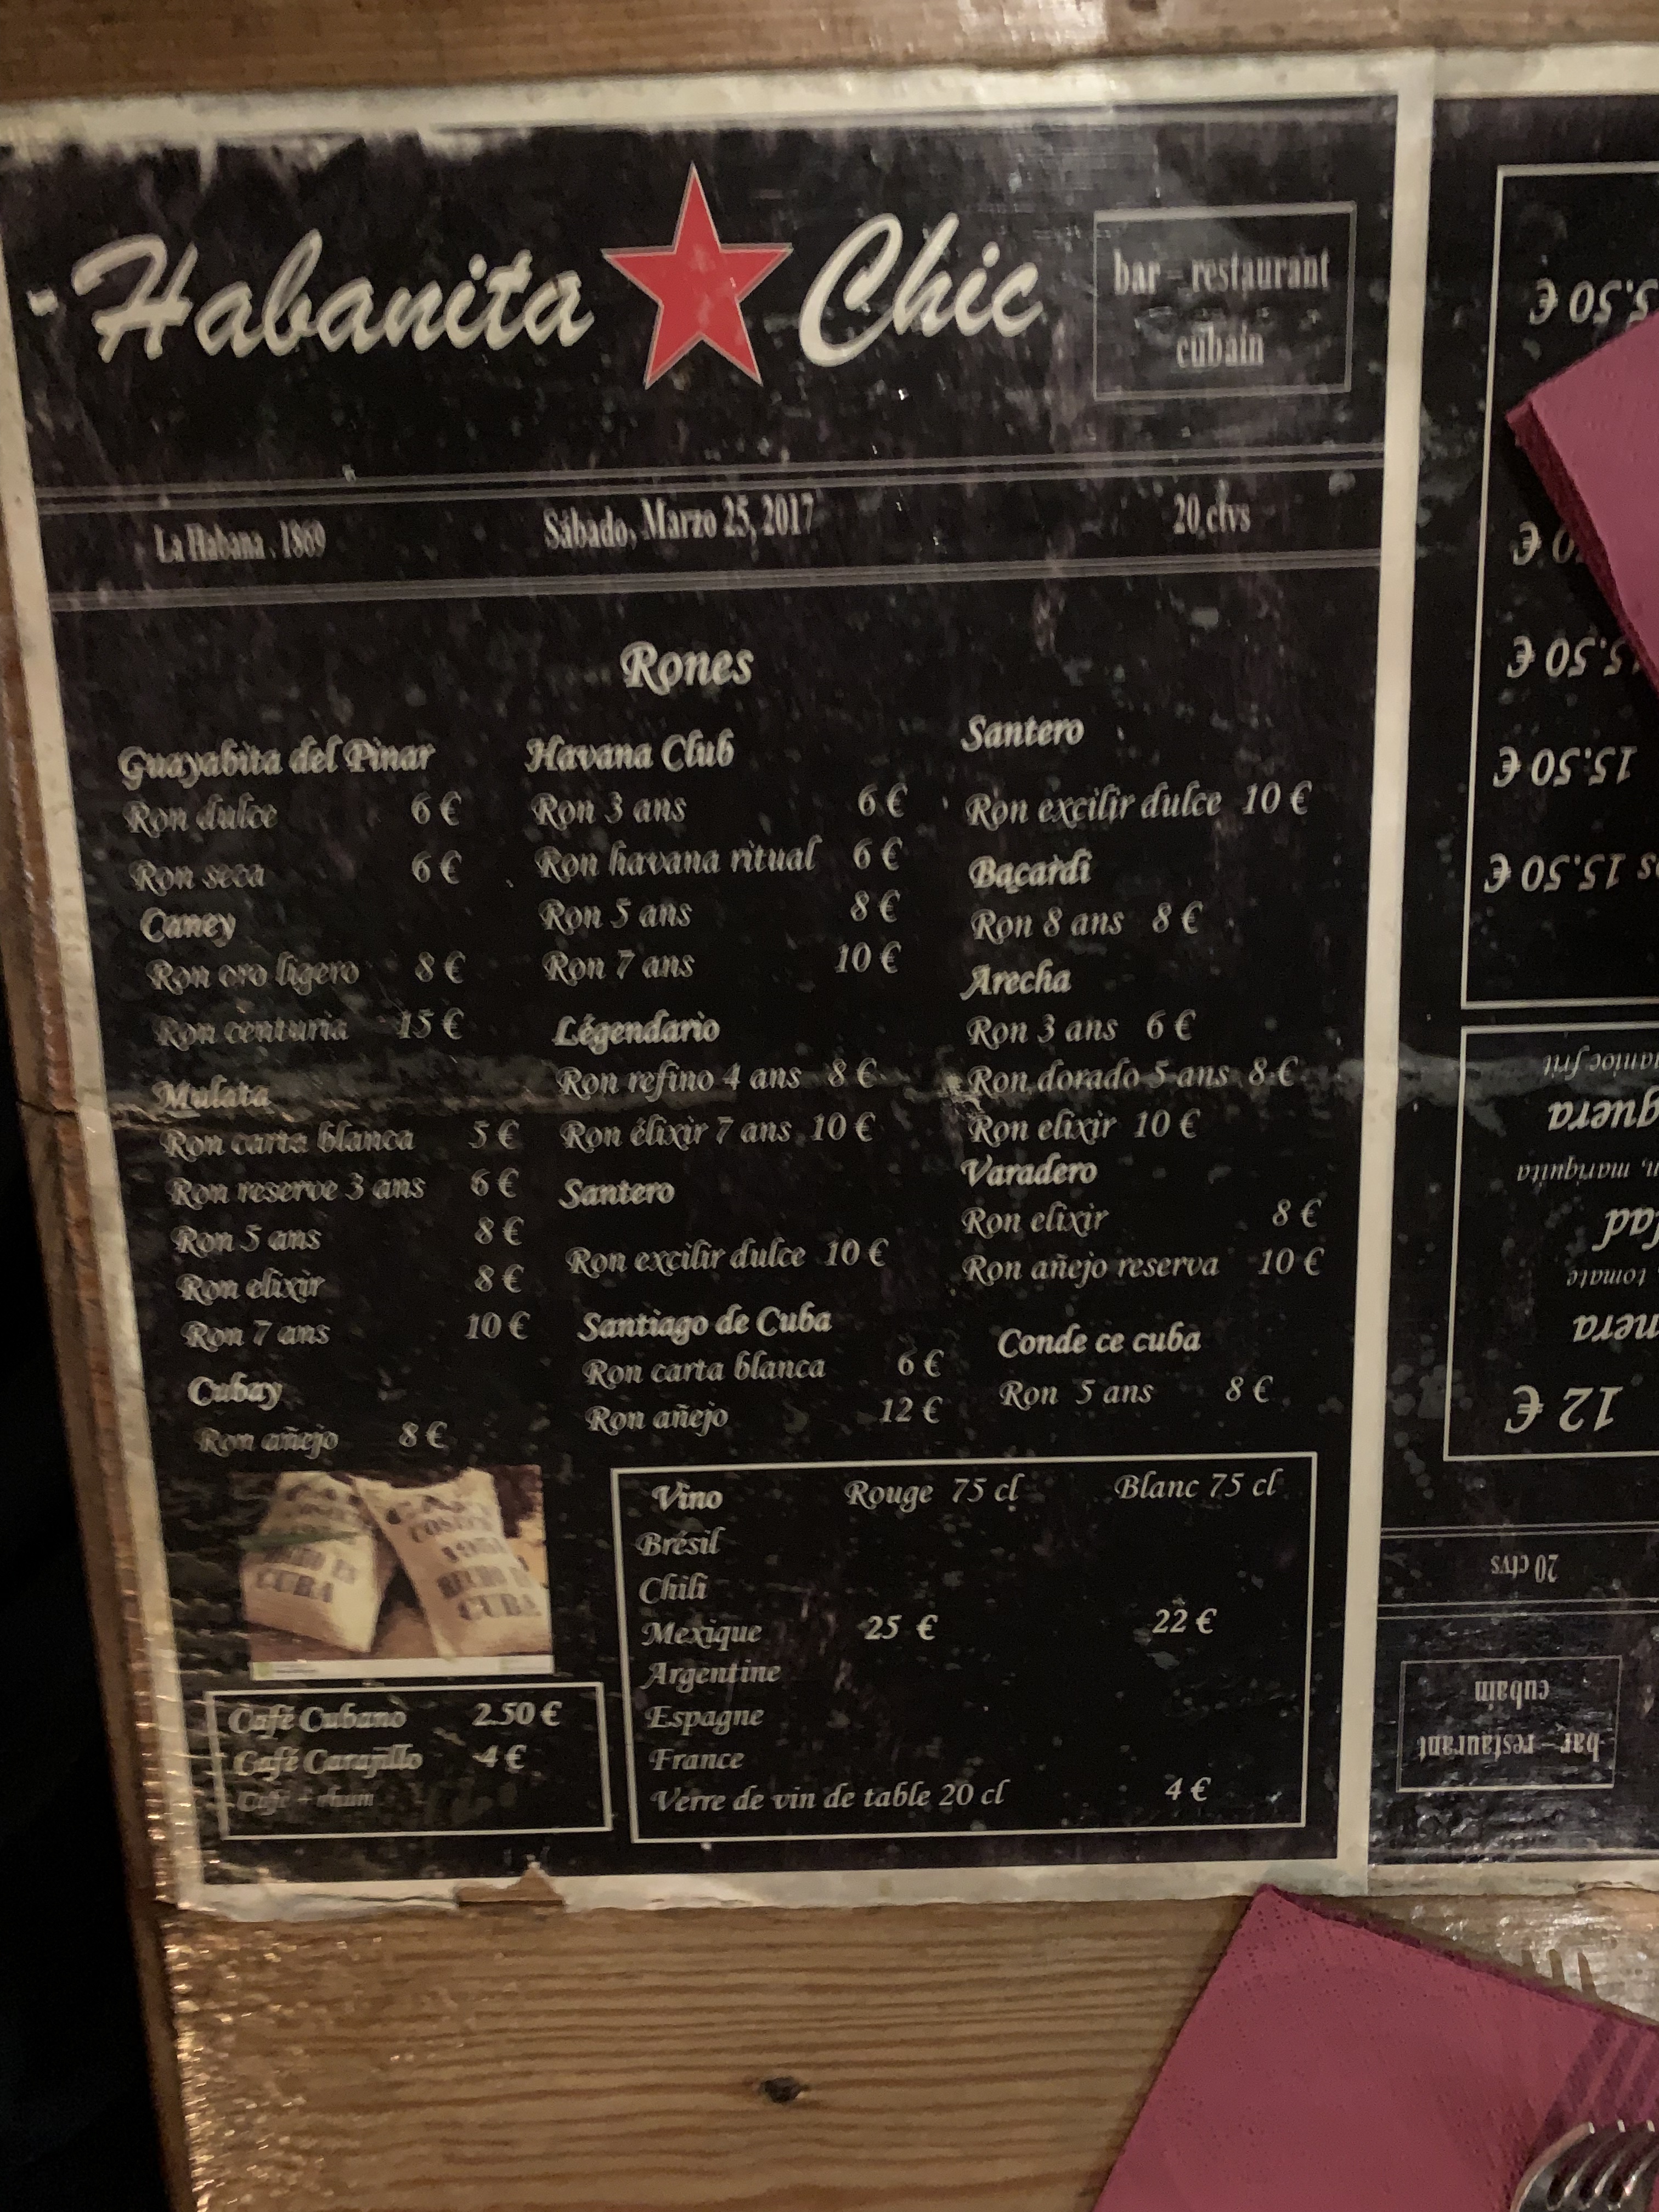 Habanita Chic
bar - restaurant
cubain
La Habana . 1869 Sábado, Marzo 25, 2017 20 ctvs
Rones
Guayabita del Pinar
Ron dulce 6 €
Ron seca 6 €
Caney
Ron oro ligero 8 €
Ron centuria 15 €
Mulata
Ron carta blanca 5 €
Ron reserve 3 ans 6 €
Ron 5 ans 8 €
Ron elixir 8 €
Ron 7 ans 10 €
Cubay
Ron añejo 8 €
Havana Club
Ron 3 ans 6 €
Ron havana ritual 6 €
Ron 5 ans 8 €
Ron 7 ans 10 €
Légendario
Ron refino 4 ans 8 €
Ron élixir 7 ans 10 €
Santero
Ron excilir dulce 10 €
Santiago de Cuba
Ron carta blanca 6 €
Ron añejo 12 €
Santero
Ron excilir dulce 10 €
Bacardi
Ron 8 ans 8 €
Arecha
Ron 3 ans 6 €
Ron dorado 5 ans 8 €
Ron elixir 10 €
Varadero
Ron elixir 8 €
Ron añejo reserva 10 €
Conde ce cuba
Ron 5 ans 8 €
CUBA
CUBA
Café Cubano 2.50 €
Café Carajillo 4 €
Café + rhum
Vino Rouge 75 cl Blanc 75 cl
Brésil
Chili
Mexique 25 € 22 €
Argentine
Espagne
France
Verre de vin de table 20 cl 4 €
bar - restaurant
cubain
20 ctvs
12 €
tomate
mariquita
frit
15.50 €
15.50 €